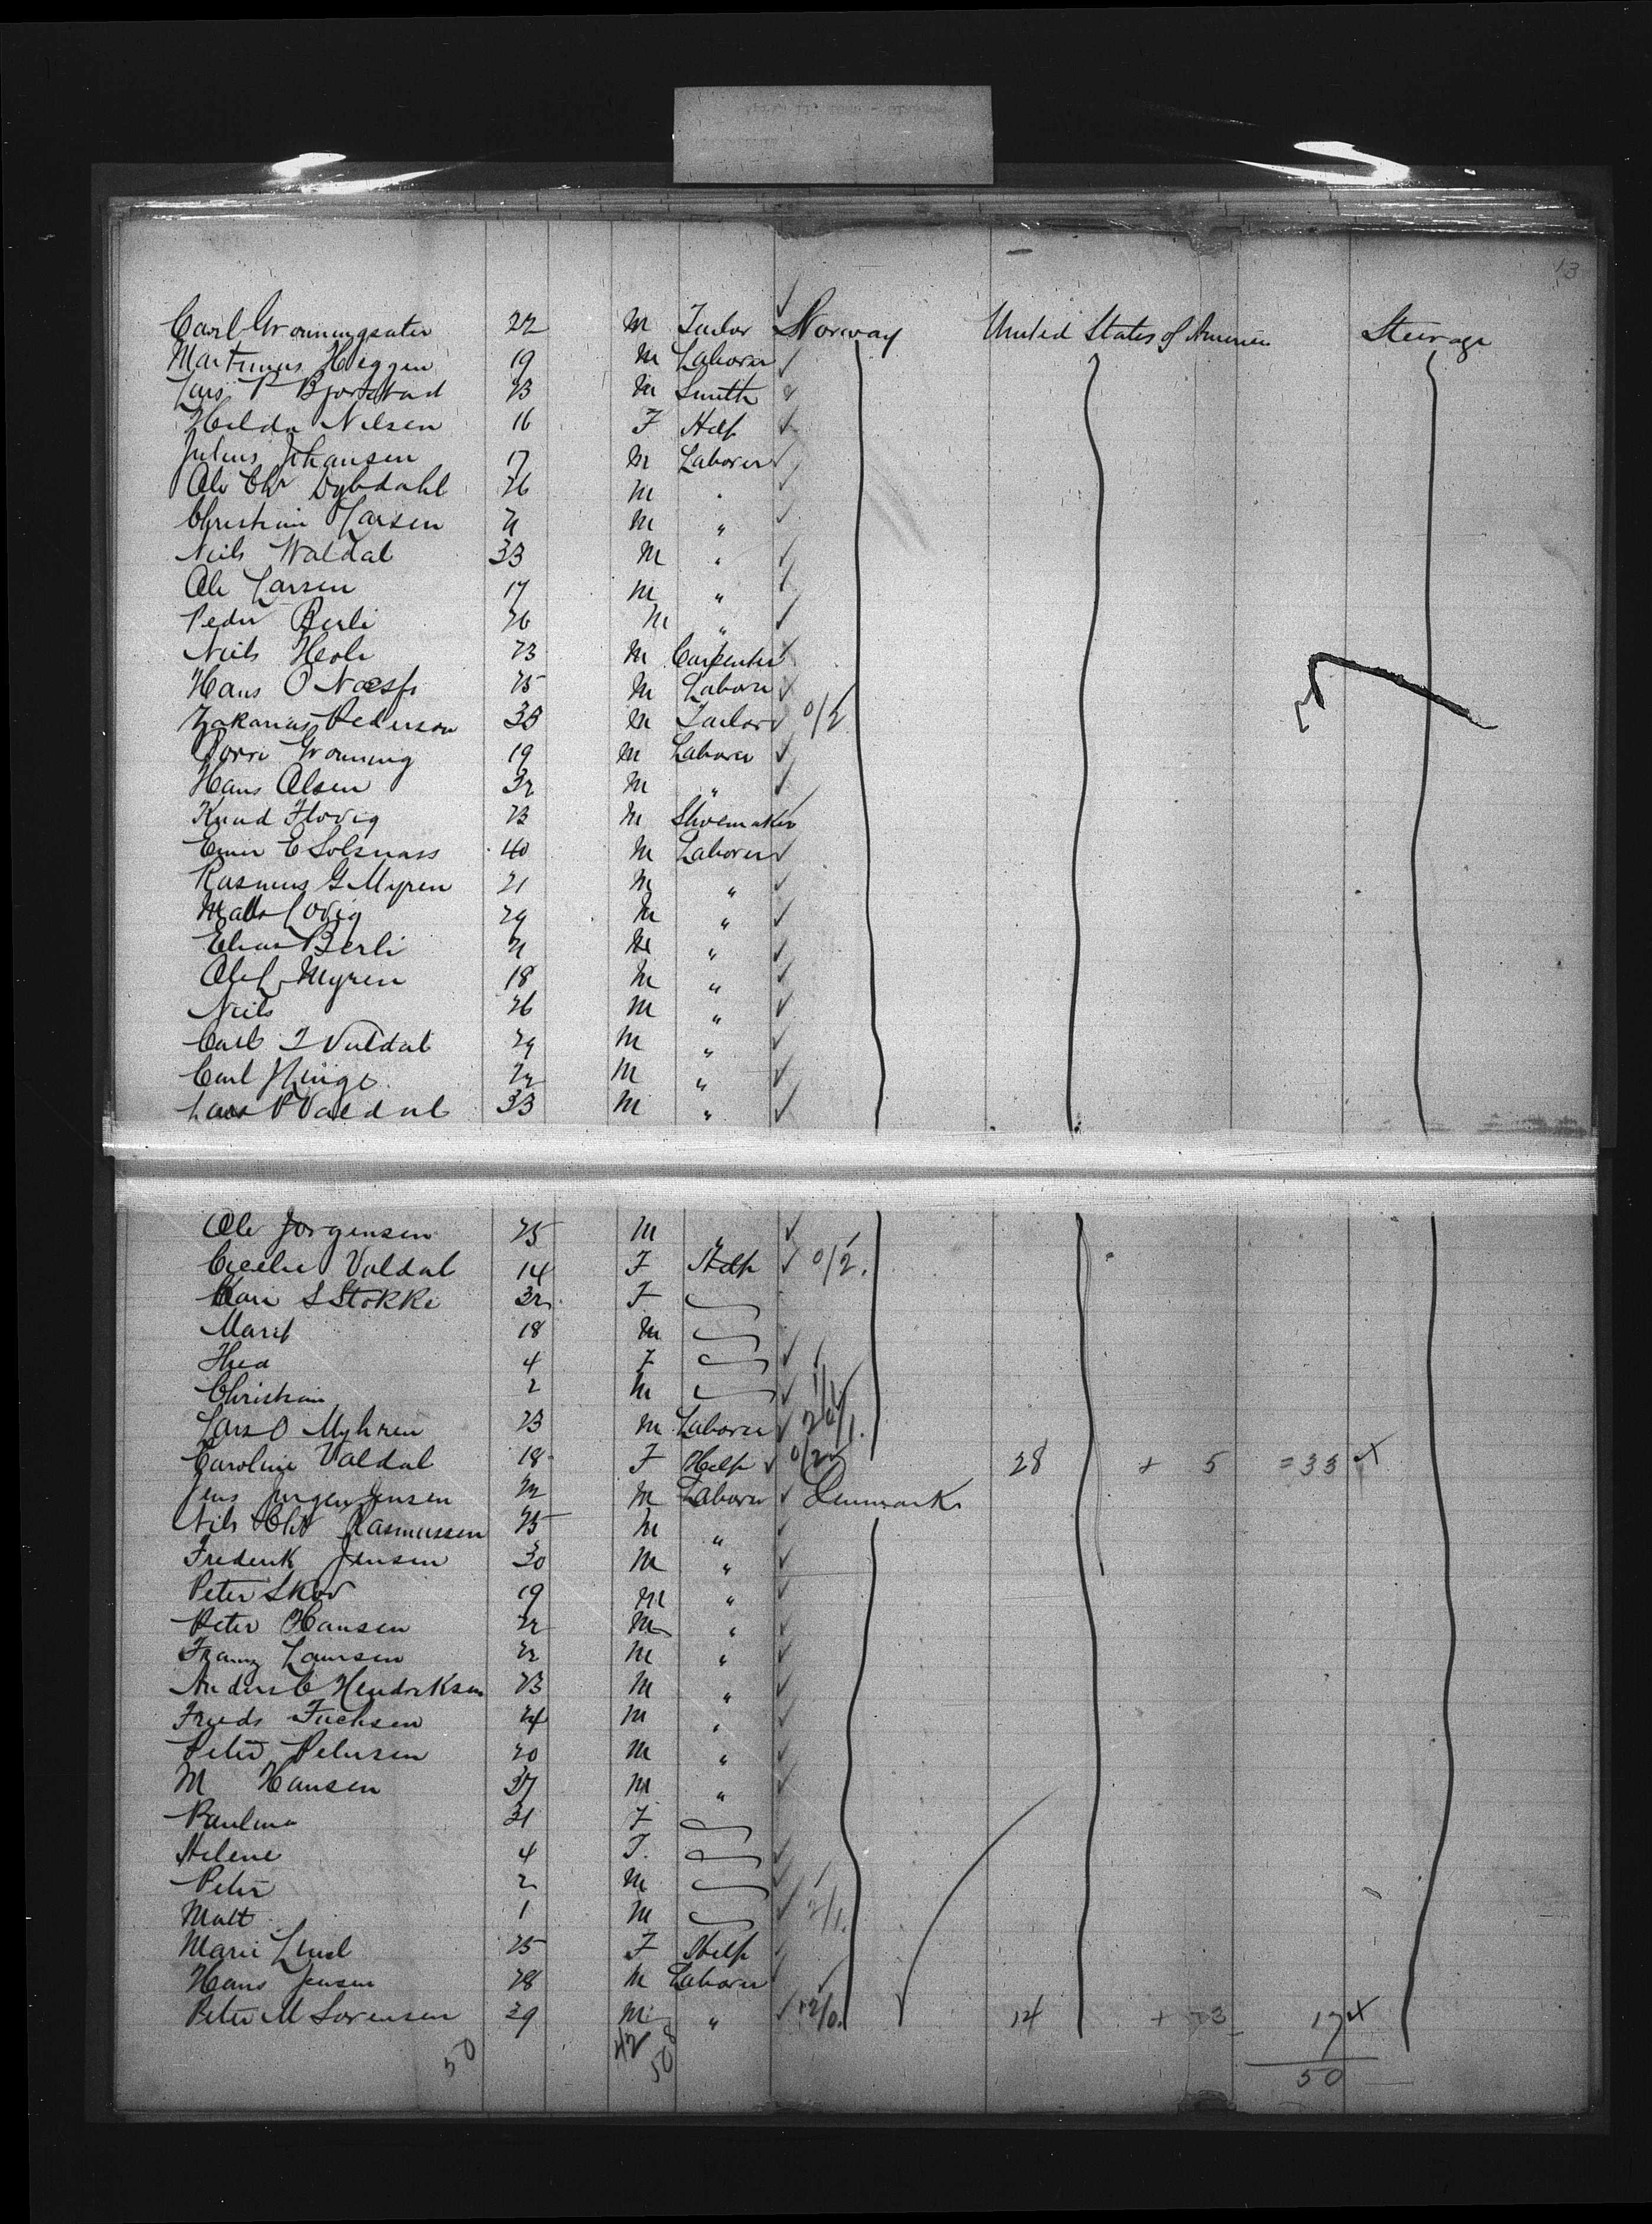 13
Carl Gronningsater 22 M Tailor Norway United States of America Steerage
Martinus Heggen 19 M Laborer
Lars P Bjorstad 23 M Smith
Hilda Nilsen 16 F Help
Julius Johansen 17 M Laborer
Ole Chr Dybdahl 26 M "
Christian Larsen 21 M "
Niels Waldal 33 M "
Ole Larsen 17 M "
Peder Berli 26 M "
Niels Hole 23 M Carpenter
Hans O 25 M Laborer
Zakarias Pederson 33 M Tailor 0/2
Gronning 19 M Laborer
Hans Olsen 32 M "
Knud Flovig 23 M Shoemaker
E Solsnass 40 M Laborer
Rasmus G Myren 21 M "
Mads Lovig 29 M "
Elias Berli 21 M "
Olef Myren 18 M "
Niels 26 M "
Carl I Valdal 29 M "
Carl Hinge 22 M "
Lars P Valdal 33 M "
Ole Jorgensen 25 M "
Cecelie Valdal 14 F Help 0/2.
Kari S Stokke 32 F
Marit 18 M
Thea 4 F
Christian 2 M
Lars O Myhren 23 M Laborer
Caroline Valdal 18 F Help 0/2 28 + 5 = 33 x
Jens Jurgen Jensen 22 M Laborer Denmark
Nils Chr Rasmussen 25 M "
Frederik Jensen 30 M "
Peter Skov 19 M "
Peter Hansen 22 M "
Franz Laursen 22 M "
Anders C Hendriksen 23 M "
Frieds Fuchsen 24 M "
Peter Petersen 20 M "
M Hansen 37 M "
Paulina 31 F
Helene 4 F.
Peter 2 M
Matt 1 M 2/1.
Marie Lind 25 F Help
Hans Jensen 28 M Laborer
Peter M Sorensen 29 M " 14 + 3 17 x
50 42 8 50 50